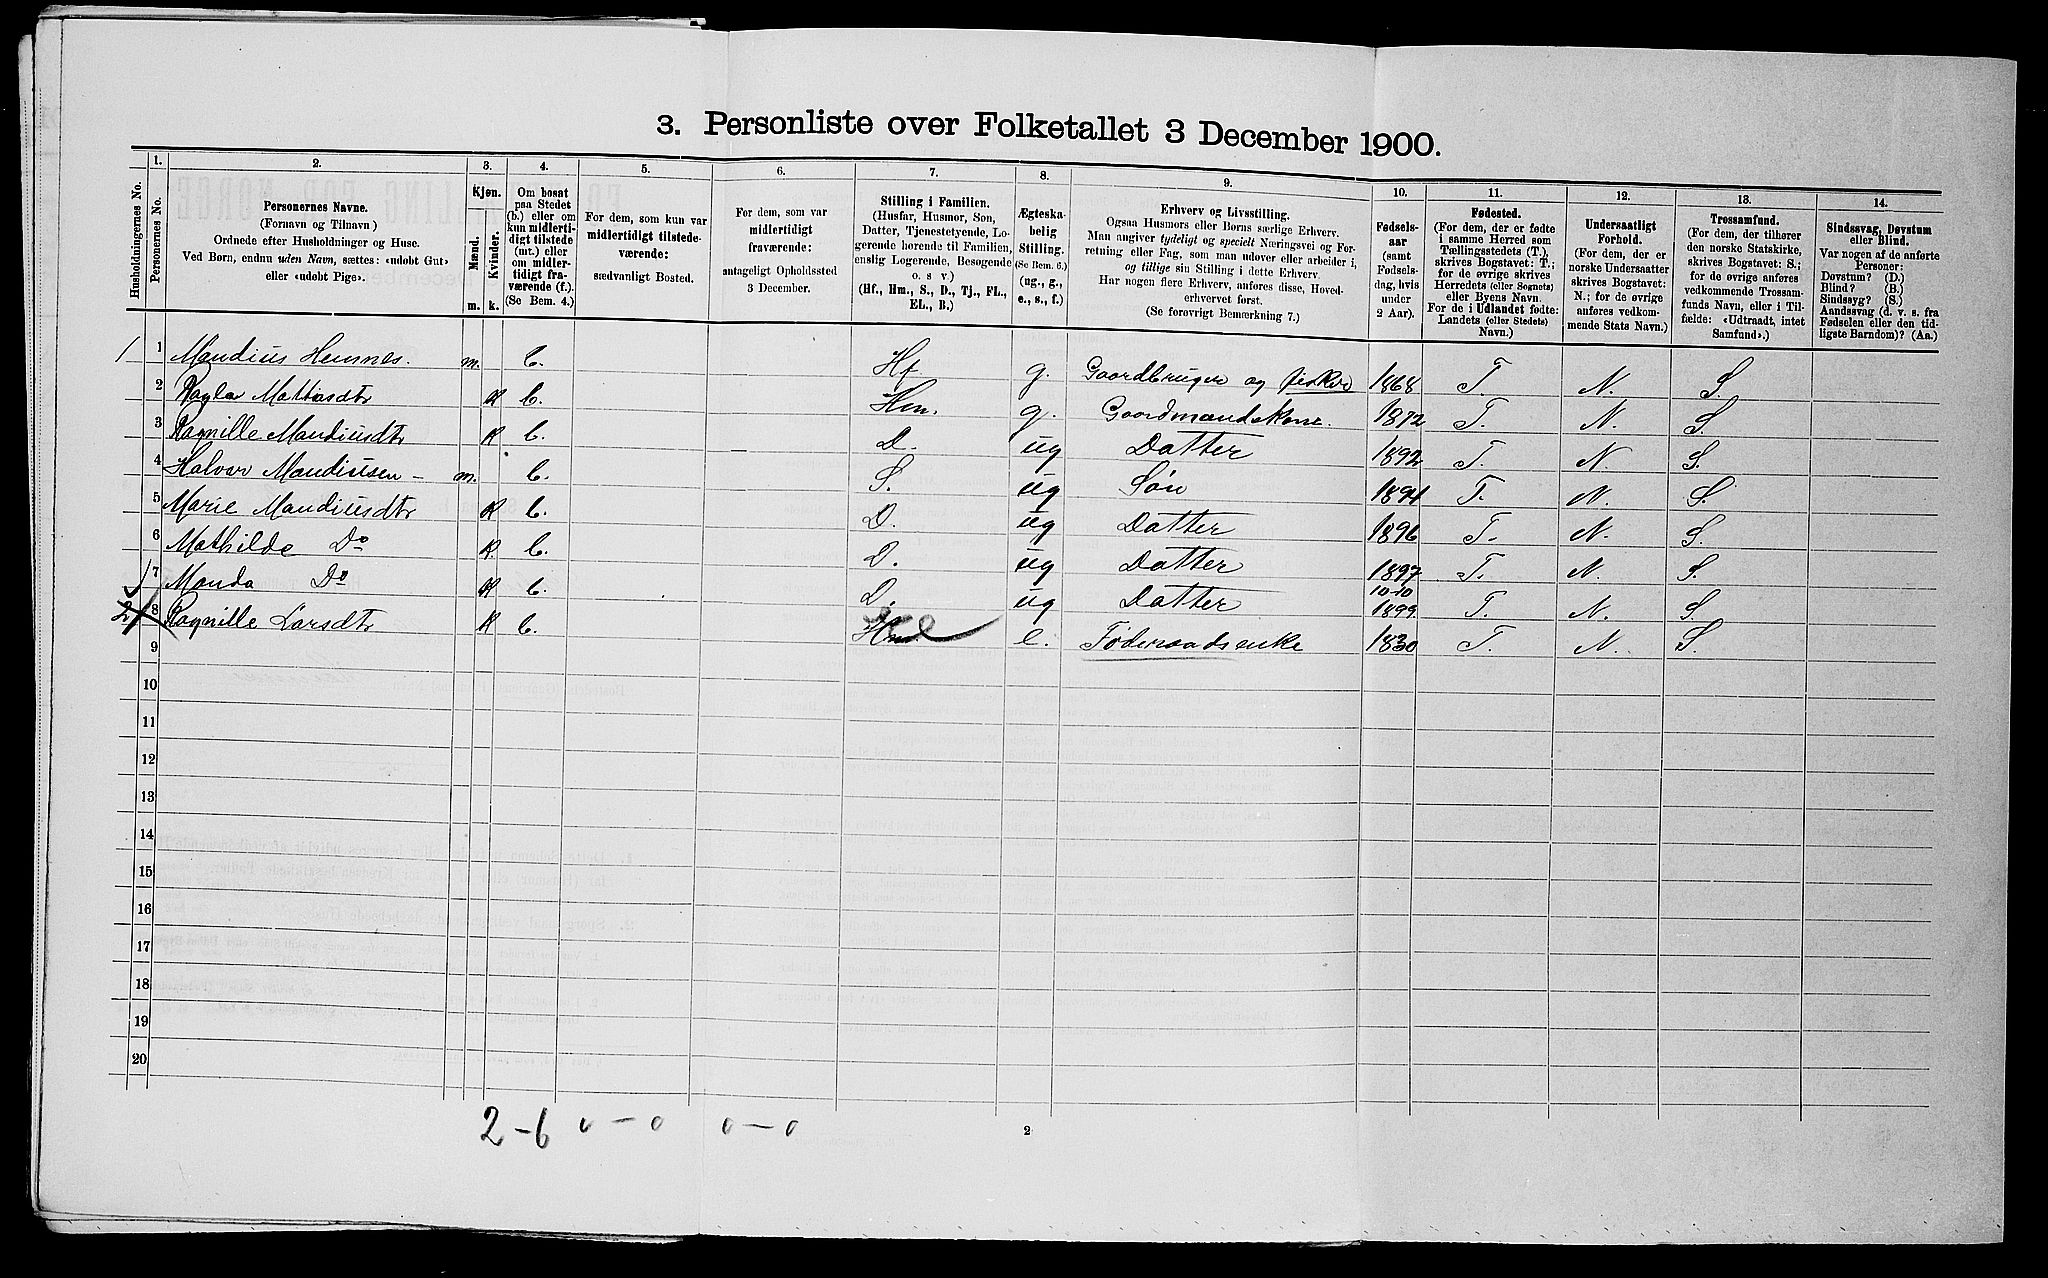 3. Personliste over Folketallet 3 December 1900.
Husholdningernes No.
1.
Personernes No.
2.
Personernes Navne.
(Fornavn og Tilnavn)
Ordnede efter Husholdninger og Huse.
Ved Børn, endnu uden Navn, sættes: «udøbt Gut»
eller «udøbt Pige».
3.
Kjøn.
Mænd.
Kvinder.
m. k.
4.
Om bosat
paa Stedet
(b.) eller om
kun midlerti-
digt tilstede
(mt.) eller
om midler-
tidigt fra-
værende (f.).
(Se Bem. 4.)
5.
For dem, som kun var
midlertidigt tilstede-
værende:
sædvanligt Bosted.
6.
For dem, som var
midlertidigt
fraværende:
antageligt Opholdssted
3 December.
7.
Stilling i Familien.
(Husfar, Husmor, Søn,
Datter, Tjenestetyende, Lo-
gerende hørende til Familien,
enslig Logerende, Besøgende
o. s v.)
(Hf., Hm., S., D., Tj., FL.,
EL., B.)
8.
Ægteska-
belig
Stilling.
(Se Bem. 6.)
(ug., g.,
e., s., f.)
9.
Erhverv og Livsstilling.
Ogsaa Husmors eller Børns særlige Erhverv.
Man angiver tydeligt og specielt Næringsvei og For-
retning eller Fag, som man udøver eller arbeider i,
og tillige sin Stilling i dette Erhverv.
Har nogen flere Erhverv, anføres disse, Hoved-
erhvervet først.
(Se forøvrigt Bemærkning 7.)
10.
Fødsels-
aar
(samt
Fødsels-
dag, hvis
under
2 Aar).
11.
Fødested.
(For dem, der er fødte
i samme Herred som
Tællingsstedets (T.),
skrives Bogstavet: T.;
for de øvrige skrives
Herredets (eller Sognets)
eller Byens Navn.
For de i Udlandet fødte:
Landets (eller Stedets)
Navn.)
12.
Undersaatligt
Forhold.
(For dem, der er
norske Undersaatter
skrives Bogstavet:
N.; for de øvrige
anføres vedkom-
mende Stats Navn.)
13.
Trossamfund.
(For dem, der tilhører
den norske Statskirke,
skrives Bogstavet: S.;
for de øvrige anføres
vedkommende Trossam-
funds Navn, eller i Til-
fælde: «Udtraadt, intet
Samfund».)
14.
Sindssvag, Døvstum
eller Blind.
Var nogen af de anførte
Personer:
Døvstum? (D.)
Blind? (B.)
Sindssyg? (S.)
Aandssvag (d. v. s. fra
Fødselen eller den tid-
ligste Barndom)? (Aa.)
1 1 Mandius Hemnes. m. b. Hf g. Gaardbruger og fisker 1868 T. N. S.
2 Mattisdtr K b. Hm. g. Gaardmandskone. 1872 T. N. S.
3 Ragnille Mandiusdtr K b. D. ug Datter 1892 T. N. S.
4 Halvar Mandiusen - m. b. S. ug Søn 1894 T. N. S.
5 Marie Mandiusdtr K b. D. ug Datter 1896 T. N. S.
6 Mathilde Do K. b. D. ug Datter 1897 T. N. S.
7 Manda Do K b. D. ug Datter 10-10 1899 T. N. S.
2 8 Ragnille Larsdtr K b. Hm e. Føderaadsenke 1830 T. N. S.
9
10
11
12
13
14
15
16
17
18
19
20
2-6 0-0 0-0
2